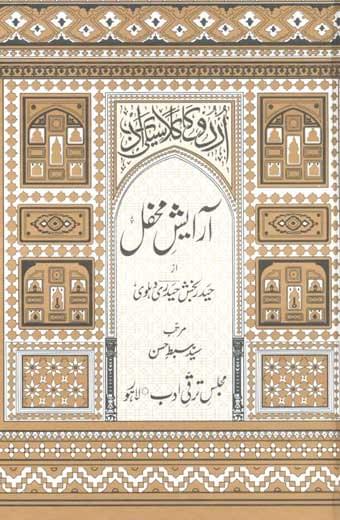 اردو کا کلاسیکی ادب
آرایشِ محفل
از
حیدر بخش حیدری دہلوی
مرتبہ
سید سبط حسن
مجلس ترقی ادب ○ لاہور